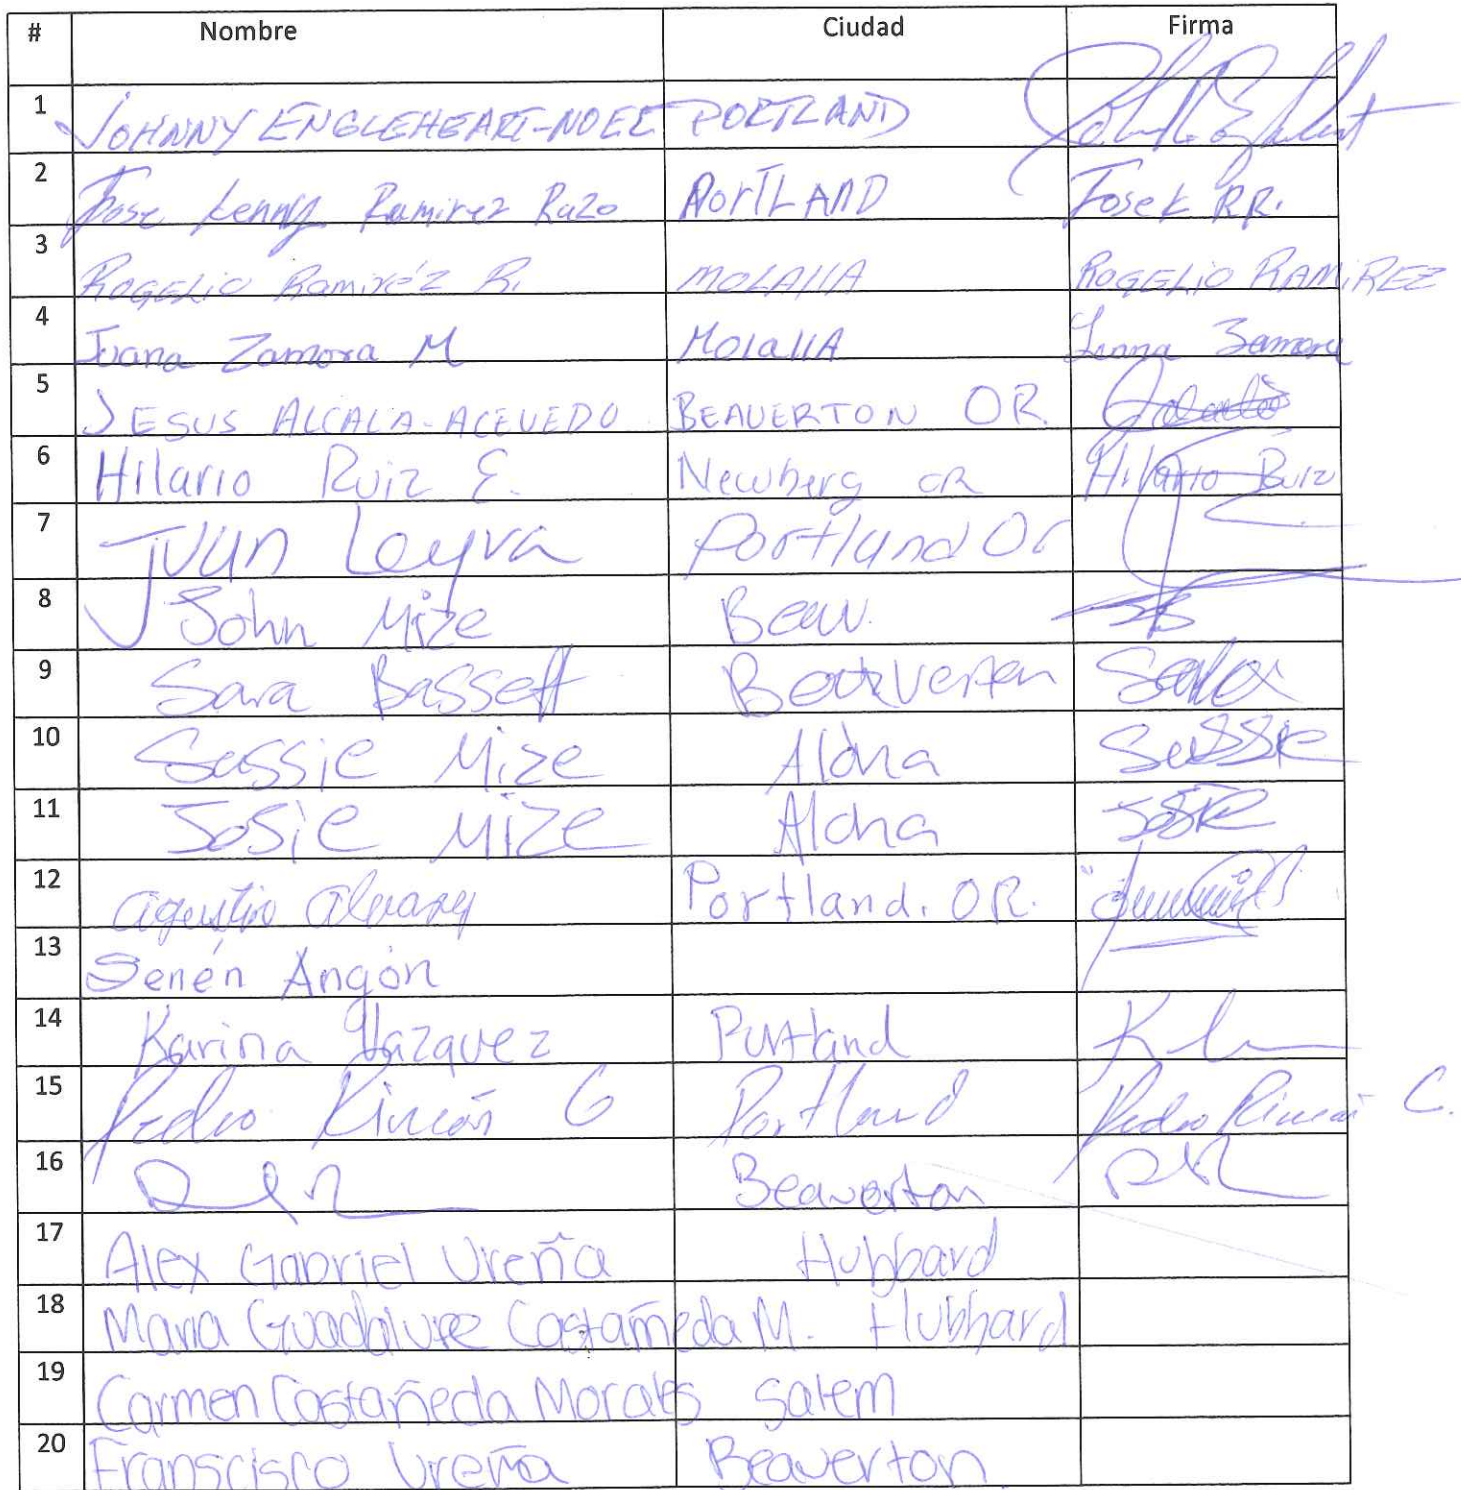 # Nombre Ciudad Firma
1 JOHNNY ENGLEHEART-NOEL PORTLAND
2 Jose Kenny Ramirez Razo PORTLAND Jose K RR.
3 ROGELIO Ramiréz R. MOLAllA ROGELIO RAMIREZ
4 Juana Zamora M MolallA Zamora
5 JESUS ALCALA-ACEVEDO BEAVERTON OR.
6 Hilario Ruiz E. Newberg OR Hilario Ruiz
7 Juan Leyva Portland Or
8 John Mize Beav.
9 Sara Bassett
10 Sussie Mize Aloha Sussie
11 Josie Mize Aloha Josie
12 Agustin Alvarez Portland. OR.
13 Senén Angón
14 Karina Vazquez Portland
15 Pedro Rincón G Portland Pedro Rincón C.
16 Beaverton
17 Alex Gabriel Ureña Hubbard
18 Maria Guadalupe Castañeda M. Hubbard
19 Carmen Castañeda Morales Salem
20 Franscisco Ureña Beaverton